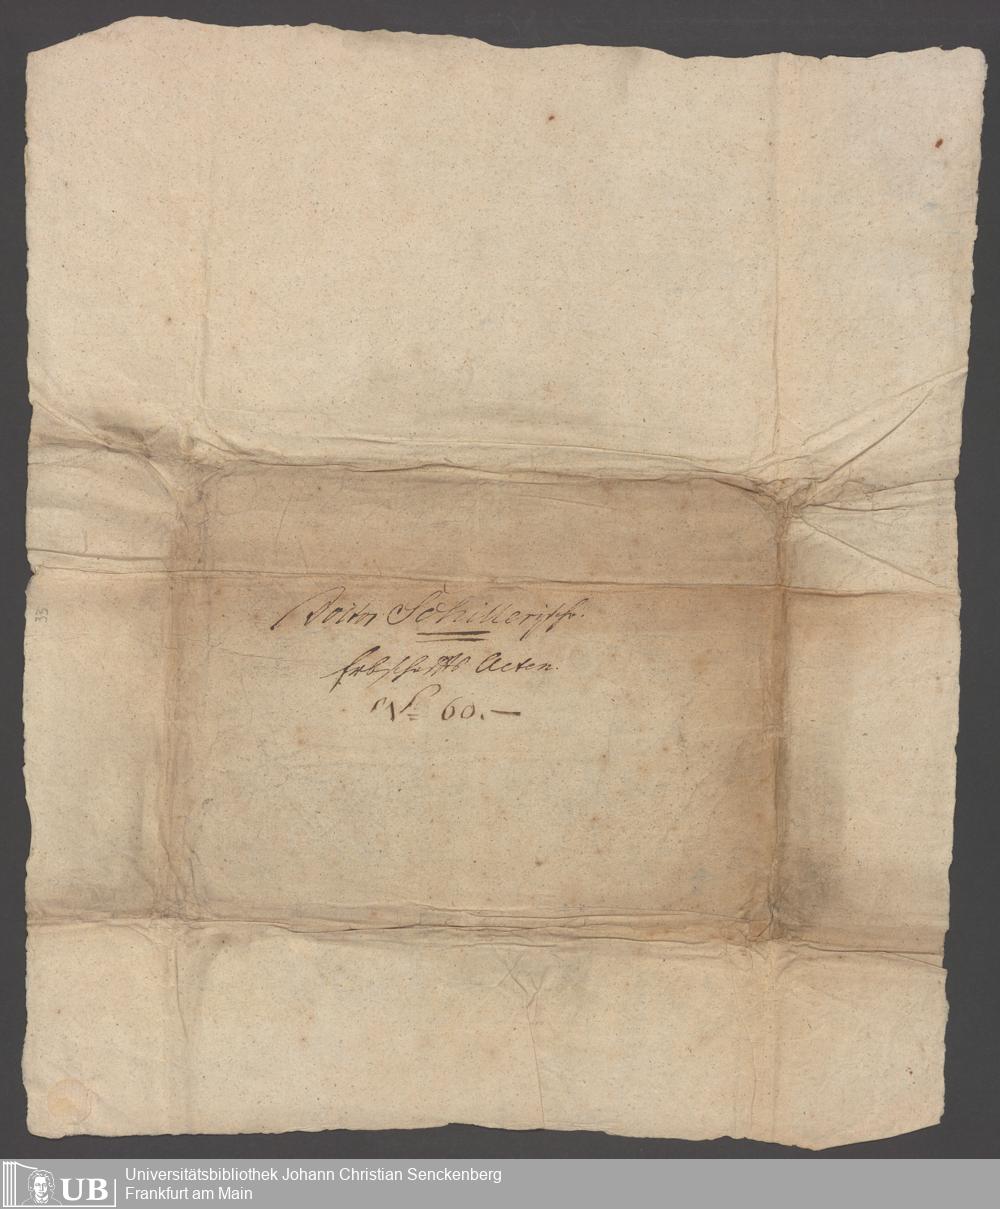 Doctor Schillerische
Erbschafts Acten.
No 60.—
35
Universitätsbibliothek Johann Christian Senckenberg
Frankfurt am Main
UB